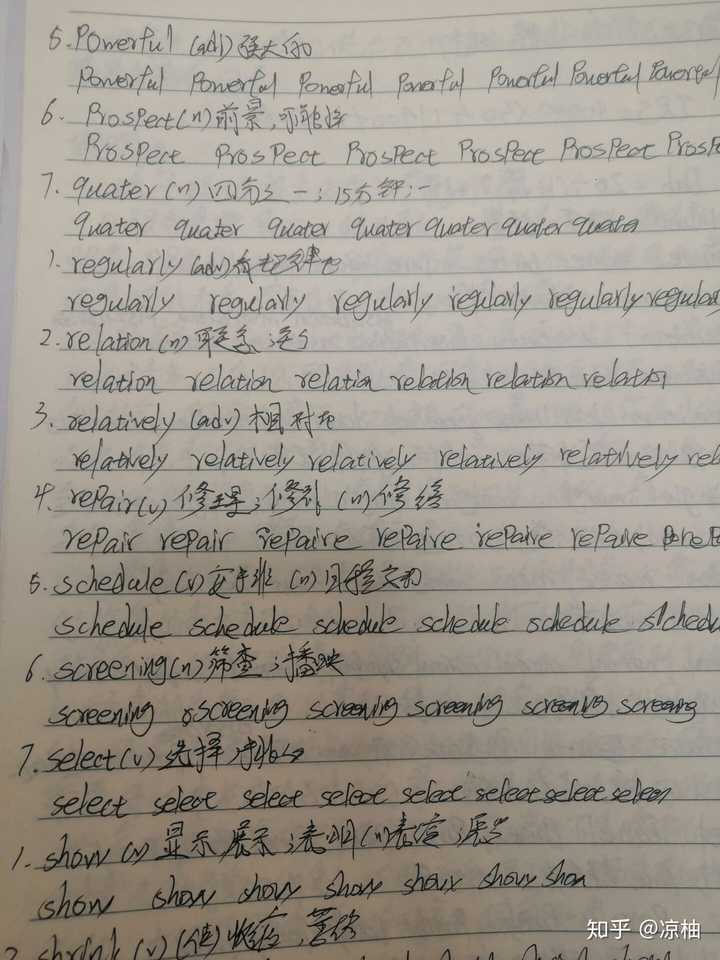 5. Powerful (adj) 强大的
Powerful Powerful Powerful Powerful Powerful Powerful Powerful
6. Prospect (n) 前景,可能性
Prospect Prospect Prospect Prospect Prospect Prosp
7. quater (n) 四分之一;15分钟;一
quater quater quater quater quater quater quater
1. regularly (adv) 有规律地
regularly regularly regularly regularly regularly regular
2. relation (n) 联系;
relation relation relation relation relation relation
3. relatively (adv) 相对地
relatively relatively relatively relatively relatively rel
4. repair (v) 修理;修补 (n) 修缮
repair repair repaire repaire repaire repaire
5. schedule (v) 安排 (n) 日程安排
schedule schedule schedule schedule schedule schedu
6. screening (n) 筛查;播映
screening screening screening screening screening screeing
7. select (v) 选择;挑选
select select select select select select select select
1. show (v) 显示,展示;表明 (n) 表演;展览
show show show show show show show
2. shrink (v) (使)收缩,
知乎 @凉柚